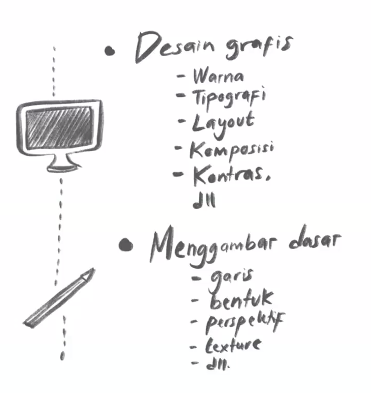 • Desain grafis
- Warna
- Tipografi
- Layout
- Komposisi
- Kontras.
dll
• Menggambar dasar
- garis
- bentuk
- perspektif
- texture
- dll.